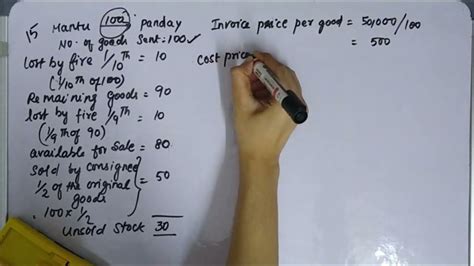 15 Mantu 100 panday
No. of goods Sent=100 ✓
lost by fire 1/10th = 10
(1/10th of 100)
Remaining goods = 90
lost by fire 1/9th = 10
(1/9th of 90)
available for sale = 80
Sold by consignee
1/2 of the original = 50
goods
100x1/2
Unsold Stock 30
Invoice price per good = 50,000/100
= 500
Cost price